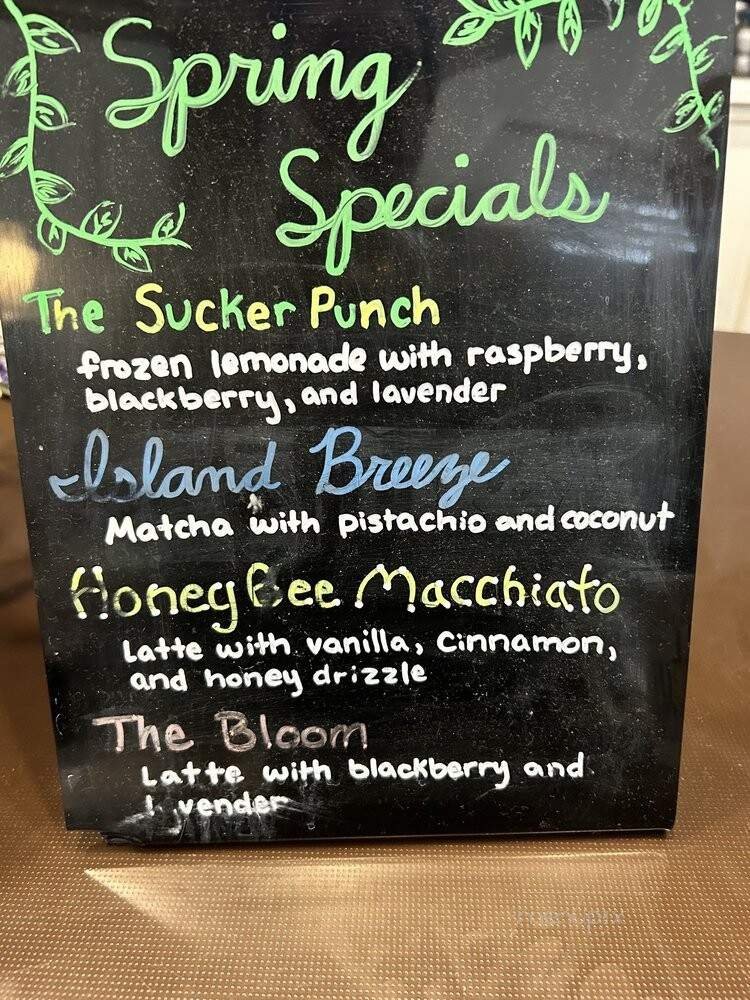 Spring
Specials
The Sucker Punch
frozen lemonade with raspberry,
blackberry, and lavender
Island Breeze
Matcha with pistachio and coconut
Honey Bee Macchiato
Latte with vanilla, cinnamon,
and honey drizzle
The Bloom
Latte with blackberry and